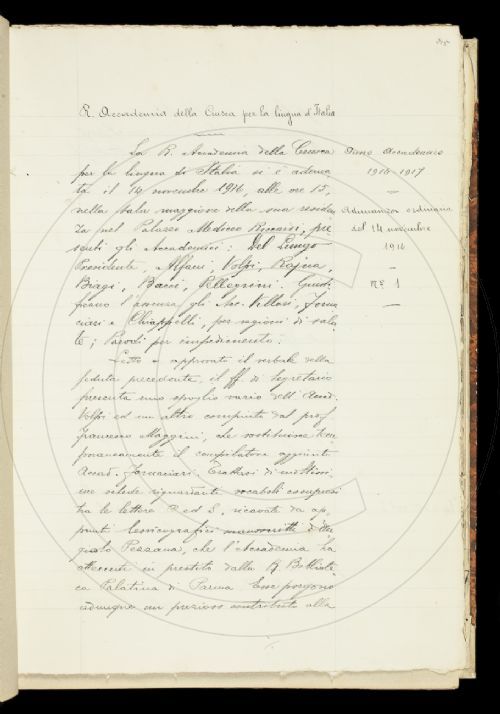 R. Accademia della Crusca per la lingua d'Italia
La R. Accademia della Crusca
per la lingua d'Italia si è aduna-
ta il 14 novembre 1916, alle ore 15,
nella sala maggiore della sua residen-
za nel Palazzo Mediceo Riccardi, pre-
senti gli Accademici: Del Lungo
Presidente, Volpi, Rajna,
Biagi, Bacci, Pellegrini. Giusti-
ficano l'assenza gli Acc. Villari, Forna-
ciari e Chiappelli, per ragioni di salu-
te; Parodi per impedimento.
Letto e approvato il verbale della
seduta precedente, il ff. di Segretario
presenta uno spoglio vario dell'Accad.
Volpi ed un altro compiuto dal prof.
Francesco Maggini, che sostituisce tem-
poraneamente il compilatore aggiunto
Accad. Fornaciari. Trattasi di
schede riguardanti vocaboli compresi
tra le lettere ed S, ricavate da ap-
punti lessicografici manoscritti d'An-
gelo Pezzana, che l'Accademia ha
ottenuto in prestito dalla R. Bibliote-
ca Palatina di Parma. Esse porgono
adunque un prezioso contributo alla
Anno Accademico
1916-1917
Adunanza ordinaria
del 14 novembre
1916
N.º 1